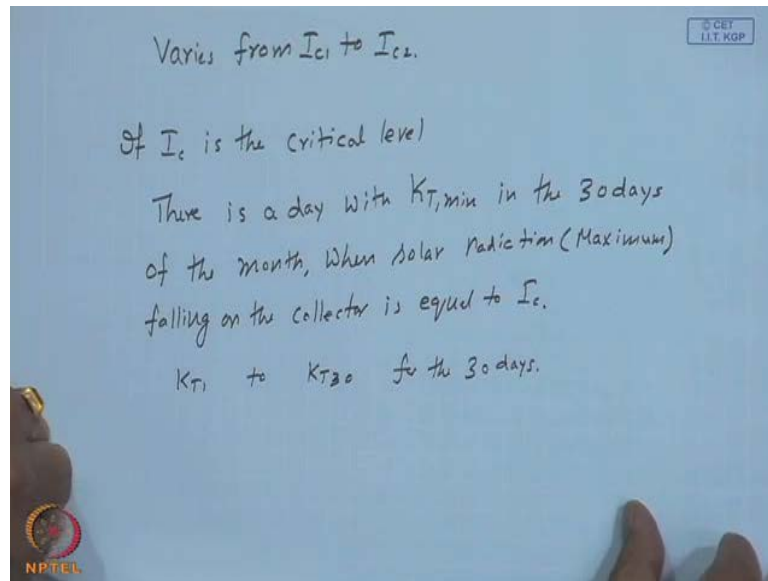 © CET
I.I.T. KGP
Varies from Ic1 to Ic2.
If Ic is the critical level
There is a day with KT,min in the 30 days
of the month, When solar radiation (Maximum)
falling on the collector is equal to Ic.
KT1 to KT30 for the 30 days.
NPTEL